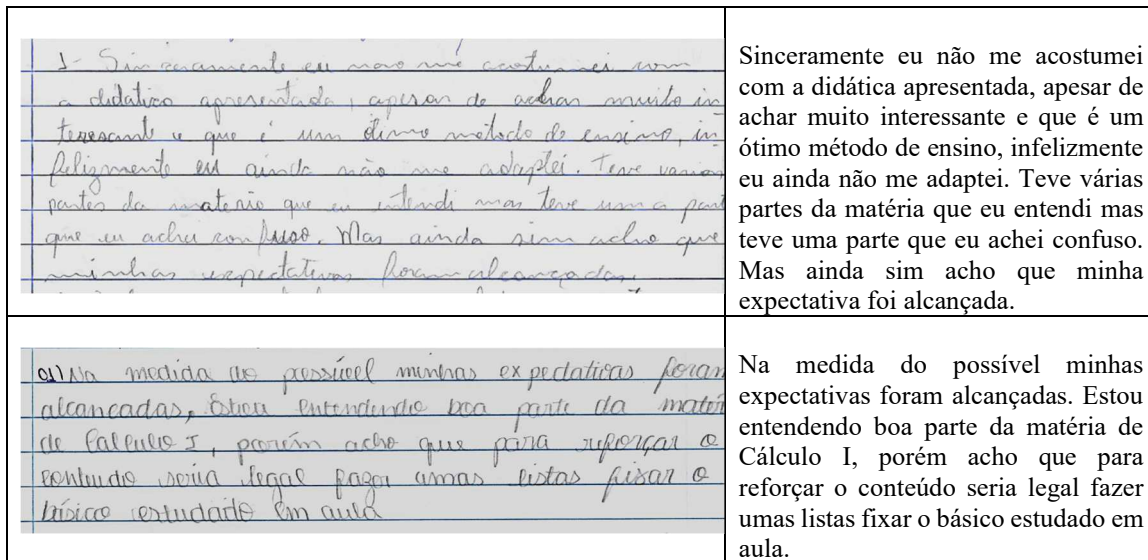 1- Sinceramente eu não me acostumei com
a didática apresentada, apesar de achar muito in
teresante e que é um ótimo método de ensino, in
felizmente eu ainda não me adaptei. Teve varias
partes da materia que eu intendi mas teve uma part
que eu achei confuso. Mas ainda sim acho que
minhas expectativas foram alcançadas.
Sinceramente eu não me acostumei
com a didática apresentada, apesar de
achar muito interessante e que é um
ótimo método de ensino, infelizmente
eu ainda não me adaptei. Teve várias
partes da matéria que eu entendi mas
teve uma parte que eu achei confuso.
Mas ainda sim acho que minha
expectativa foi alcançada.
01) Na medida do possível minhas expectativas foram
alcancadas, Estou entendendo boa parte da matéri
de Calculo I, porém acho que para reforçar o
conteudo seria legal umas listas fixar o
básico estudado em aula
Na medida do possível minhas
expectativas foram alcançadas. Estou
entendendo boa parte da matéria de
Cálculo I, porém acho que para
reforçar o conteúdo seria legal fazer
umas listas fixar o básico estudado em
aula.